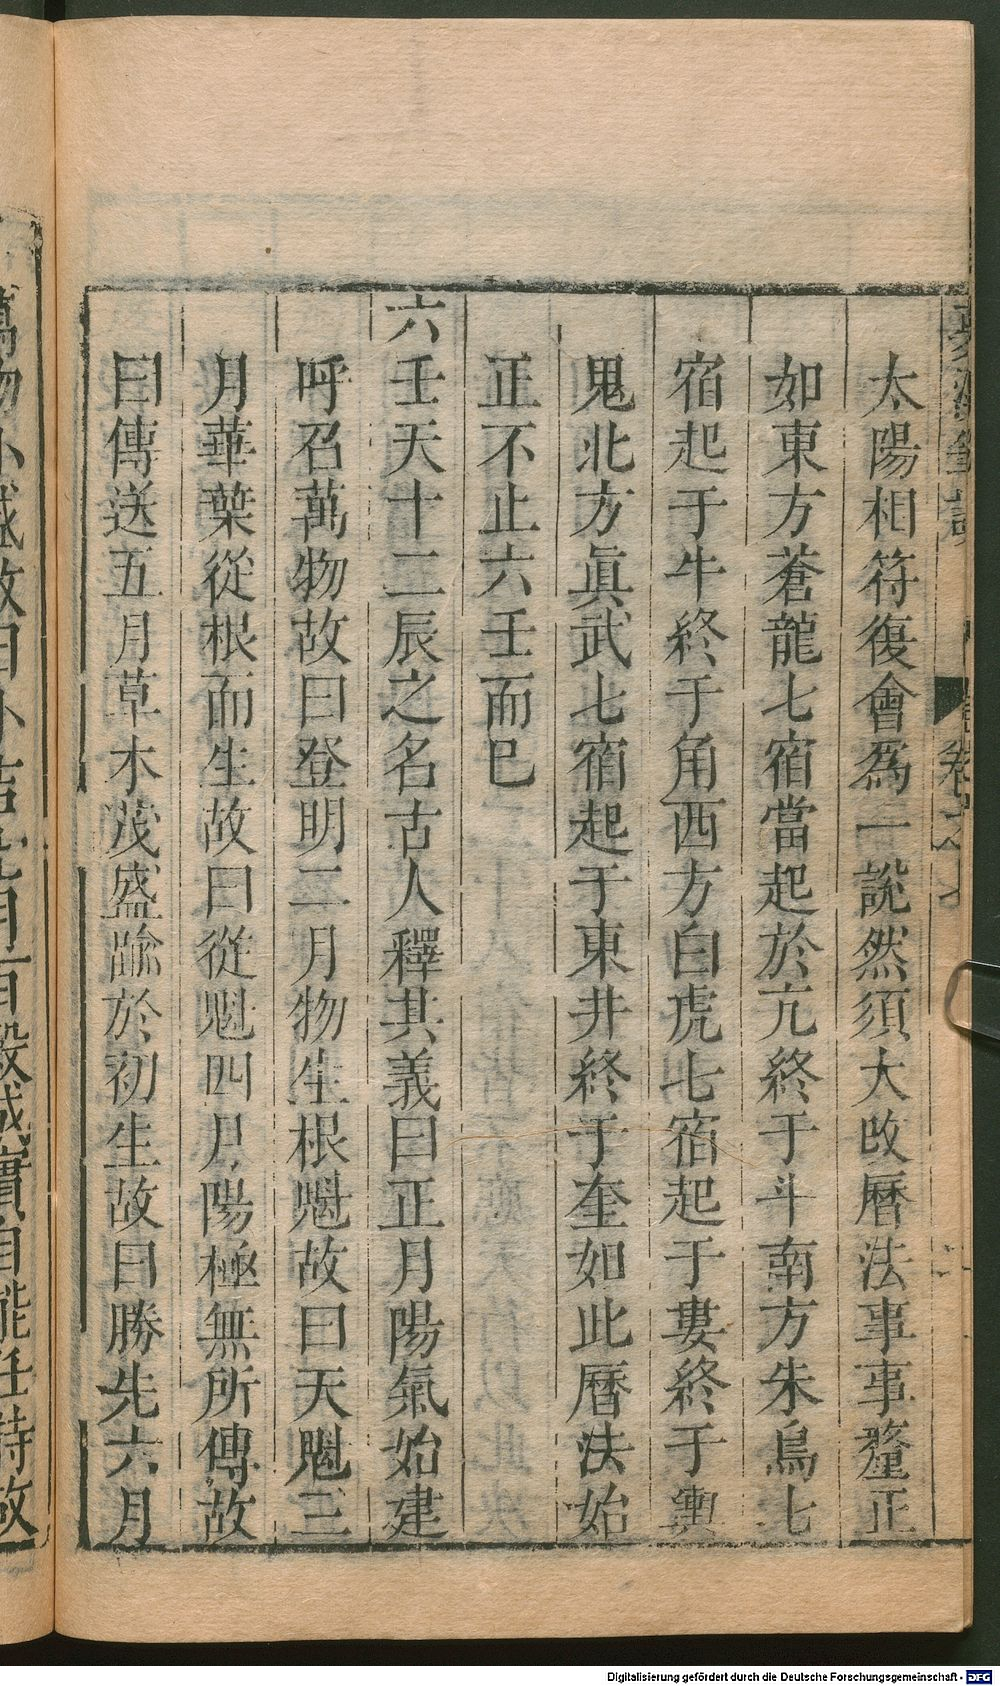 太陽相符復會爲一說然須大改曆法事事釐正
如東方蒼龍七宿當起於亢終于斗南方朱鳥七
宿起于牛終于角西方白虎七宿起于婁終于輿
鬼北方眞武七宿起于東井終于奎如此曆法始
正不止六壬而巳
六壬天十二辰之名古人釋其義曰正月陽氣始建
呼召萬物故曰登明二月物生根魁故曰天魁三
月華葉從根而生故曰從魁四月陽極無所傳故
曰傳送五月草木茂盛踰於初生故曰勝先六月
萬物小盛故曰小吉七月百穀成實自能任持故
Digitalisierung gefördert durch die Deutsche Forschungsgemeinschaft - DFG